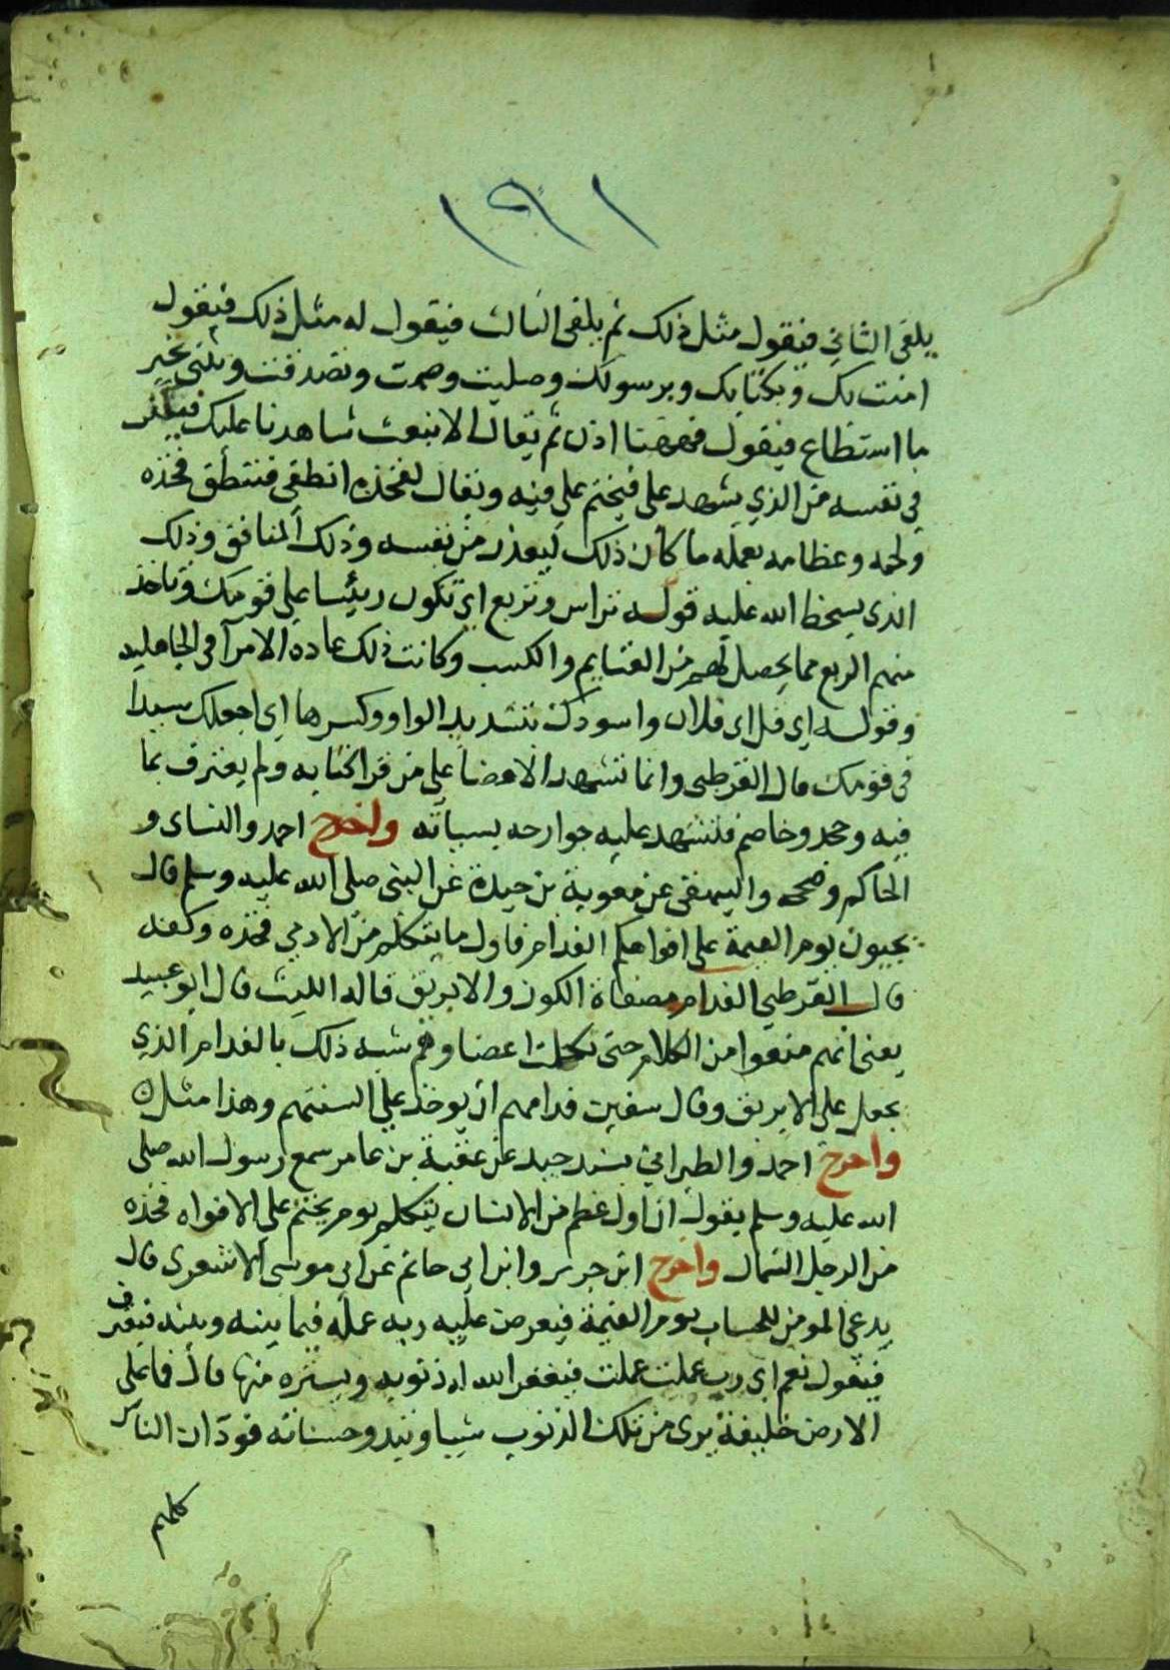 ١٩١
يلقى الثاني فيقول مثل ذلك ثم يلقى الثالث فيقول له مثل ذلك فيقول
امنت بك وبكتابك وبرسولك وصليت وصمت وتصدقت ويثني بخير
ما استطاع فيقول فههنا اذن ثم يقال الا نبعث شاهدنا عليك فيفكر
في نفسه من الذي يشهد علي فيختم على فيه ويقال لفخذه انطقي فتنطق فخذه
ولحمه وعظامه بعمله ما كان ذلك ليعذر من نفسه وذلك المنافق وذلك
الذي يسخط الله عليه قوله تراس وتربع اي تكون رييسا على قومك وتاخذ
منهم الربع مما يحصل لهم من الغنايم والكسب وكانت ذلك عادة الامرآ في الجاهلية
وقوله اي فل اي فلان واسودك بتشديد الواو وكسرها اي اجعلك سيدا
في قومك قال القرطبي وانما تشهد الاعضا على من قرا كتابه ولم يعترف بما
فيه وجحد وخاصم فتشهد عليه جوارحه بسياته واخرج احمد والنساى و
الحاكم وصححه والبيهقي عن معوية بن حيدة عن النبي صلى الله عليه وسلم قال
يجيون يوم القيمة على افواهكم الفدام فاول ما يتكلم من الادمي فخذه وكفه
قال القرطبي الفدام مصفاة الكوز والابريق قاله الليث قال ابو عبيد
يعني انهم منعوا من الكلام حتى تكلمت اعضاوهم شبه ذلك بالفدام الذي
يجعل على الابريق وقال سفين فدامهم ان يوخذ على السنتهم وهذا مثل
واخرج احمد والطبراني بسند جيد عن عقبة بن عامر سمع رسول الله صلى
الله عليه وسلم يقول ان اول عظم من الانسان يتكلم يوم يختم على الافواه فخذه
من الرجل الشمال واخرج ابن جرير وابن ابي حاتم عن ابي موسى الاشعري قال
يدعى المومن للحساب يوم القيمة فيعرض عليه ربه عمله فيما بينه وبينه فيعترف
فيقول نعم اي رب عملت عملت فيغفر الله له ذنوبه ويستره منها قال فما على
الارض خليقة يرى من تلك الذنوب شيا وتبدو حسناته فود ان الناس
كلهم